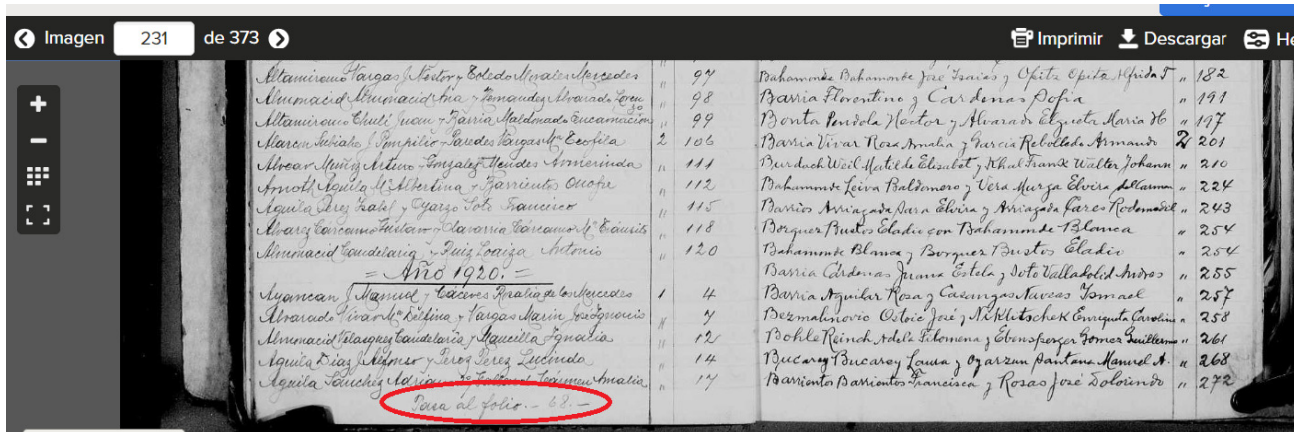 Imagen 231 de 373
Imprimir Descargar
Altamirano Vargas J. Nestor y Toledo Morales Mercedes " 97
Almonacid Almonacid Ana y Fernandez Alvarado Loren " 98
Altamirano Chuli Juan y Barria Maldonado Encarnacion " 99
Alarcon Subiabre J. Pompilio y Paredes Vargas Mª Teofila 2 106
Alvear Muñoz Arturo y Gonzalez Mendes Armerinda " 111
Amoth Aguila M. Albertina y Barrientos Onofre " 112
Aguila Perez Isabel y Oyarzo Soto Francisco " 115
Alvarez Carcamo Gustavo y Chavarria Cárcamo Mª Tránsito " 118
Almonacid Candelaria y Ruiz Loaiza Antonio " 120
= Año 1920. =
Ayancan J. Manuel y Cáceres Rosalia de las Mercedes 1 4
Alvarado Vivar Mª Delfina y Vargas Marin José Ignacio " 7
Almonacid Velasquez Candelaria y Mancilla Ignacio " 12
Aguila Diaz J. Alfonso y Perez Perez Lucinda " 14
Aguila Sanchez Adrian y Carmen Amalia " 17
Pasa al folio.- 68.-
Bahamonde Bahamonde José Isaias y Opitz Opitz Alfrida T " 182
Barria Florentino y Cardenas Sofia " 191
Bonta Pendola Hector y Alvarado Ezquete Maria H " 197
Barria Vivar Rosa Amalia y Garcia Rebolledo Armando 2 201
Burdach Weil Matilde Elisabet y Khal Frank Walter Johann " 210
Bahamonde Leiva Baldomero y Vera Murga Elvira del Carmen " 224
Barrios Arriagada Sara Elvira y Arriagada Gares Rodemil " 243
Borquez Bustos Eladio con Bahamonde Blanca " 254
Bahamonde Blanca y Borquez Bustos Eladio " 254
Barria Cárdenas Juana Estela y Soto Valladolid Andres " 255
Barria Aguilar Rosa y Casangas Naveas Ismael " 257
Bezmalinovic Ostoic José y Niklitschek Enriqueta Carolina " 258
Bohle Reinch Adela Filomena y Ebensperger Gomez Guillermo " 261
Bucarey Bucarey Laura y Oyarzun Santana Manuel A. " 268
Barrientos Barrientos Francisca y Rosas José Dolorindo " 272